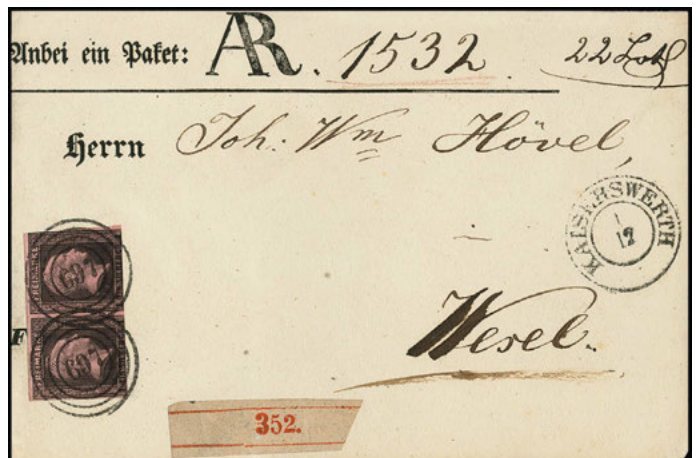 Anbei ein Paket: AR. 1532. 22 Loth
Herrn Joh: Wm Hövel,
KAISERSWERTH
1
12
697
697
F
Wesel.
352.